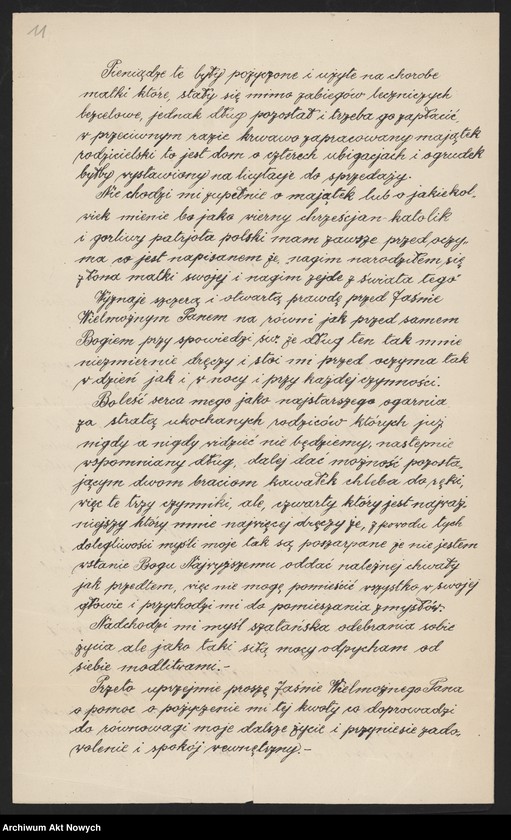 11
Pieniądze te były pożyczone i użyte na chorobe
matki które, stały się mimo zabiegów leczniczych
bezcelowe, jednak dług pozostał i trzeba go zapłacić,
w przeciwnym razie krwawo zapracowany majątek
rodzicielski to jest dom o czterech ubigacjach i ogrudek
byłby wystawiony na licytacje do sprzedaży.
Nie chodzi mi zupełnie o majątek lub o jakiekol-
wiek mienie bo jako wierny chrześcjan-katolik
i gorliwy patrjota polski mam zawsze przed oczy-
ma co jest napisanem że, nagim narodziłem się
z łona matki swojej i nagim zejde z świata tego
Wyznaje szczerą i otwartą prawdę przed Jaśnie
Wielmożnym Panem na równi jak przed samem
Bogiem przy spowiedzi św. że dług ten tak mnie
niezmiernie dręczy i stoi mi przed oczyma tak
w dzień jak i w nocy i przy każdej czynności.
Boleść serca mego jako najstarszego ogarnia
za stratą ukochanych rodziców których już
nigdy a nigdy widzieć nie będziemy, nastempnie
wspomniany dług, dalej dać możność pozosta-
jącym dwom braciom kawałek chleba do ręki,
więc te trzy czynniki, ale, czwarty który jest najważ-
niejszy który mnie najwięcej dręczy że, z powodu tych
dolegliwości myśli moje tak są poszarpane że nie jestem
wstanie Bogu Najwyższemu oddać należnej chwały
jak przedtem, więc nie mogę pomieścić wszystko w swojej
głowie i przychodzi mi do pomieszania zmysłów.
Nadchodzi mi myśl szatańska odebrania sobie
życia ale jako taki siłą mocy odpycham od
siebie modlitwami.-
Przeto uprzejmie proszę Jaśnie Wielmożnego Pana
o pomoc o pożyczenie mi tej kwoty co doprowadzi
do równowagi moje dalsze życie i przyniesie zado-
wolenie i spokój wewnętrzny.-
Archiwum Akt Nowych